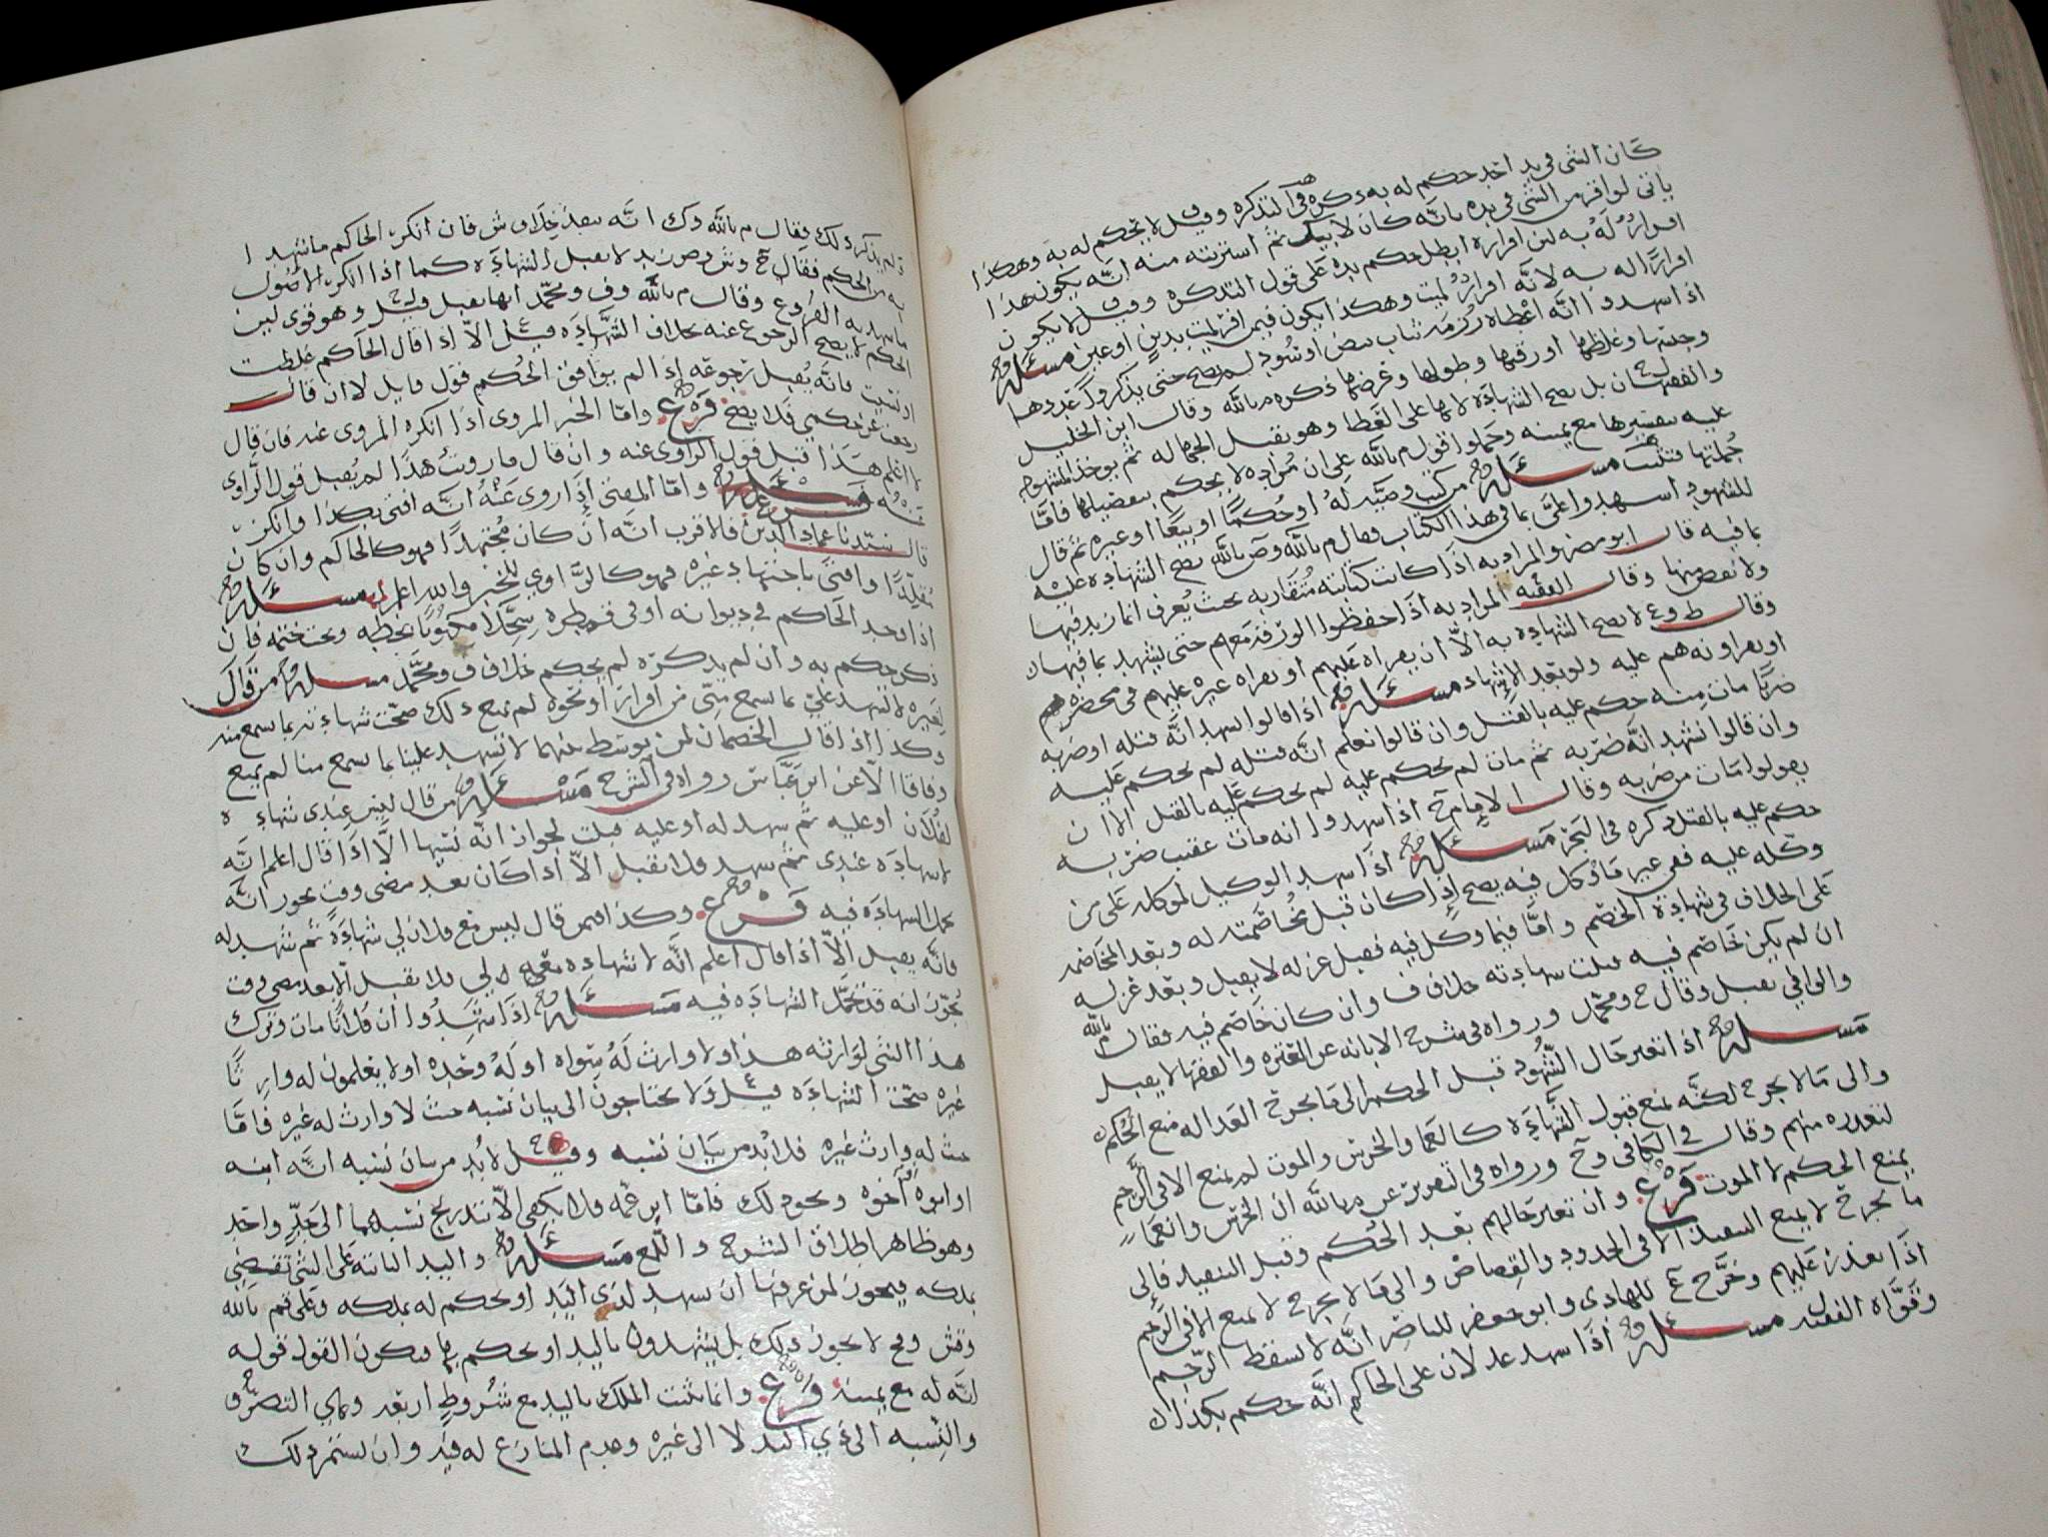 كان الشي في يد احد حكم له به ذكره في التذكره وقيل لا يحكم له به وهكذا
ياتي لو اقر من الشي في يده بانه كان لابيك ثم اشتريته منه انه يكون هذا
اقرارٌ لهُ به لان اقراره ابطل حكم يده على قول التذكره وقيل لا يكون
اقرارًا له به لانه اقرارٌ لميت وهكذا يكون فيمن اقر لميت بدين او عين مسئله
اذا شهدوا انه اعطاه رزمة ثياب بيض او سُود لم يصح حتى يذكروا عددها
وجنسها وغلظها او رقتها وطولها وعرضها ذكره م بالله وقال ابن الخليل
والفقيهان بل تصح الشهادة لانها على اللفظ وهو يقبل الجهاله ثم يوخذ المشهود
عليه بتفسيرها مع يمينه وحملوا قول م بالله على ان مُراده لا يحكم بتفصيلها فاما
جُملتها فتثبت مسئله من كتب وصيه لهُ او حُكمًا او بيعًا او غيره ثم قال
للشهود اشهدوا عليَّ بما في هذا الكتاب فقال م بالله وص بالله تصح الشهاده عليه
بما فيه قال ابو مضر والمراد به اذا كانت كتابته مُتقاربه بحيث يُعرف انما زيد فيها
ولا نقص منها وقال الفقيه المراد به اذا حفظوا الورقة معهم حتى يشهد بما فيها
وقال ط وع لا تصح الشهاده به الاّ ان يقراه عليهم او يقراه غيره عليهم في محضرهم
او يقراونه هم عليه ولو بعد الاشهاد مسئله اذا قالوا نشهد انَّه قتله او ضربه
ضربًا مات منه حكم عليه بالقتل وان قالوا نعلم انه قتله لم يحكم عليه
وان قالوا نشهد انه ضربه ثم مات لم يحكم عليه لم يحكم عليه بالقتل الا ان
يقولوا مات من ضربه وقال الامام ح اذا شهدوا انه مات عقيب ضربه
حكم عليه بالقتل ذكره في البحر مسئله اذا شهد الوكيل لموكله على من
وكله عليه ففي غير ما وكل فيه يصح اذا كان قبل مُخاصمته له وبعد المخاصمه
على الخلاف في شهادة الخصم واما فيما وكل فيه فقبل عزله لا يقبل وبعد عزله
ان لم يكن خاصم فيه قبلت شهادته خلاف ف وان كان خاصم فيه فقال م بالله
والوافي يقبل وقال ح ومحمد ورواه في شرح الابانه عن القتره والفقها لا يقبل
مسئله اذا تغير حال الشهود قبل الحكم الى ما يجرح العداله منع الحُكم
والى ما لا يجرح لكنه يمنع قبول الشهادة كالعما والخرس والموت لم يمنع الا في الرجم
لتعذره منهم وقال في الكافي وح ورواه في التقرير عن م بالله ان الخرس والعما
يمنع الحكم لا الموت فرع وان تغير حالهم بعد الحُكم وقبل التنفيذ فالى
ما يجرح لا يمنع التنفيذ الا في الحدود والقصاص والى ما لا يجرح لا يمنع الا في الرجم
اذا تعذر عليهم وخرَّج ع للهادي وابو جعفر للناصر انه لا يسقط الرجم
وقوَّاه الفقيه مسئله اذا شهد عدلان على الحاكم انه حكم بكذا
ولم يذكر ذلك فقال م بالله وك انه ينفذ خلاف ش فان انكر الحاكم ما شهدا
به من الحكم فقال ح وش وص زيد لا يقبل الشهادة كما اذا انكر الاصُول
ما شهد به الفُروع وقال م بالله وف ومحمد انها تقبل قيل وهو قوي لان
الحكم لا يصح الرجوع عنه بخلاف الشهاده قيل الاّ اذا قال الحاكم غلطت
او نسيت فانه يُقبل رجوعه اذا لم يوافق الحُكم قول قايل لا ان قال
رجعت عن حكمي فلا يصح فرع واما الخبر المروي اذا انكره المروي عنه فان قال
لا اعلم هذا قبل قول الراوي عنه وان قال ما رويتُ هذا لم يُقبل قول الراوي
عنه مسئله واما المفتي اذا روى عنهُ انه افتى بكذا وانكر
قال سيدنا عماد الدين فالاقرب انه ان كان مُجتهدًا فهو كالحاكم وان كان
مقلِّدًا وافتى باجتهاد غيره فهو كالراوي للخبر والله اعلم مسئله
اذا وجد الحاكم في ديوانه او في قمطره سجلًا مكتوبًا بخطه وتحت ختمه فان
ذكر حكم به وان لم يذكره لم يحكم خلاف ف ومحمد مسئله من قال
لغيره لا تشهد عليَّ بما تسمع منّي من اقرار او نحوه لم يمنع ذلك صحت شهادته بما سمع منه
وكذا اذا قال الخصمان لمن توسط بينهما لا تشهد علينا بما تسمع منا لم يمنع
وفاقا الاّ عن ابن عباس رواه في الشرح مسئله من قال ليس عندي شهاده
لفلان او عليه ثم شهد له او عليه قبلت لجواز انه نسيها الاّ اذا قال اعلم انه
لا شهادة عندي ثم شهد فلا تقبل الاّ اذا كان بعد مضي وقت يجوز انه
تحمل الشهادة فيه فرع وكذا فيمن قال ليس مع فلان لي شهادةً ثم شهد له
فانه يقبل الاّ اذا قال اعلم انَّه لا شهاده معه لي فلا يقبل الا بعد مضي وقت
يجوز انه قد تحمَّل الشهاده فيه مسئله اذا شهدُوا ان فلانًا مات وترك
هذا الشي لوارثه هذا ولا وارث لهُ سواه او لهُ وحده او لا يعلمون له وارثًا
غيره صحت الشهادة قيل ولا يحتاجون الى بيان نسبه حيث لا وارث له غيره فامَّا
حيث له وارث غيره فلا بُد من بيان نسبه وقيل لا بُد من بيان نسبه انَّه ابنه
او ابوه او اخوه ونحو ذلك فاما ابن عمه فلا يكفي الاّ بتدريج نسبهما الى جدٍّ واحد
وهو ظاهر اطلاق الشرح واللمع مسئله واليد الثابته على الشي تقتضي
ملكه فيجوز لمن عرفها ان يشهد لذي اليد او يحكم له بملكه وعلى قول م بالله
وقش ومح لا يجوز ذلك بل يشهدون باليد او يحكم بها فيكون القول قوله
انَّه له مع يمينه فرع وانما يثبت الملك باليد مع شروطٍ اربعه وهي التصرُّف
والنسبه الى ذي اليد لا الى غيره وعدم المنازع له فيه وان يستمر ذلك